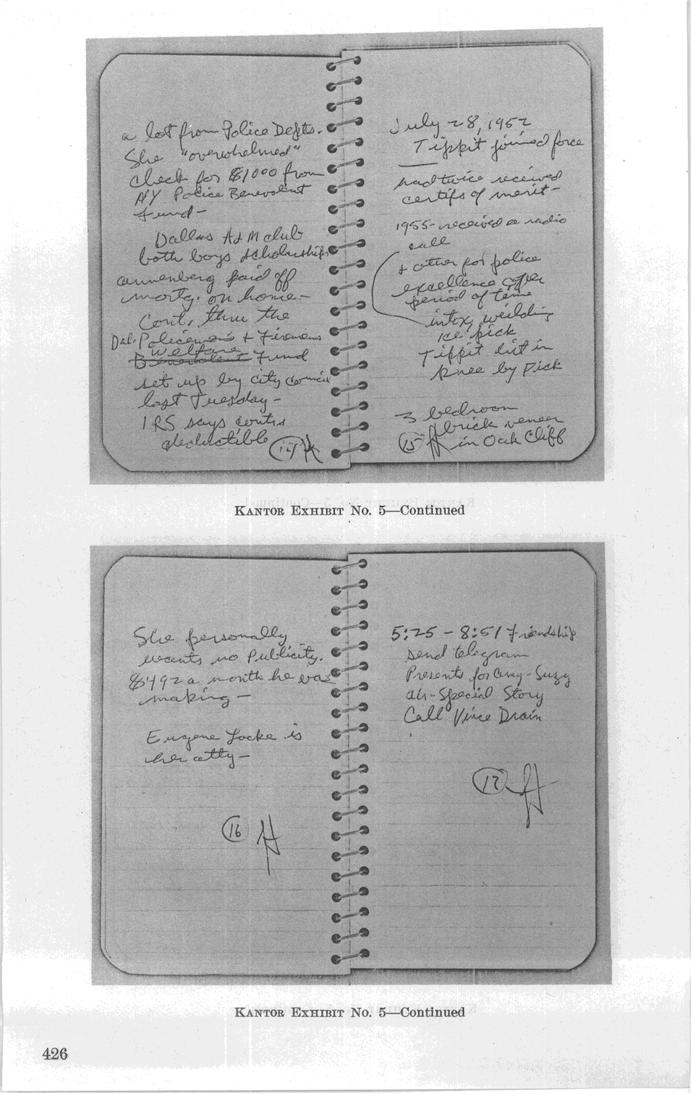 a lot from Police Depts.
She "overwhelmed"
check for $1000 from
NY Police Benevolent
fund -
Dallas A&M club
both boys scholarships
annenberg paid off
mortg. on home -
Cont. thru the
Dal. Policemens + Firemens
welfare
Benevolent Fund
set up by city council
last Tuesday -
IRS says contrs
deductible
July 28, 1952
Tippit joined force
had twice received
certifs of merit -
1955 - received a radio
call
+ other for police
excellence over
period of time
intox wielding
ice pick
Tippit hit in
knee by Pick
3 bedroom
brick veneer
15 in Oak Cliff
KANTOR EXHIBIT No. 5—Continued
She personally
wants no Publicity.
$492 a month he was
making -
Eugene Locke is
her atty -
16
5:25 - 8:51 Friendship
send telegram
Presents for Amy-Suzy
Air-Special Story
Call Vince Drain
17
KANTOR EXHIBIT No. 5—Continued
426